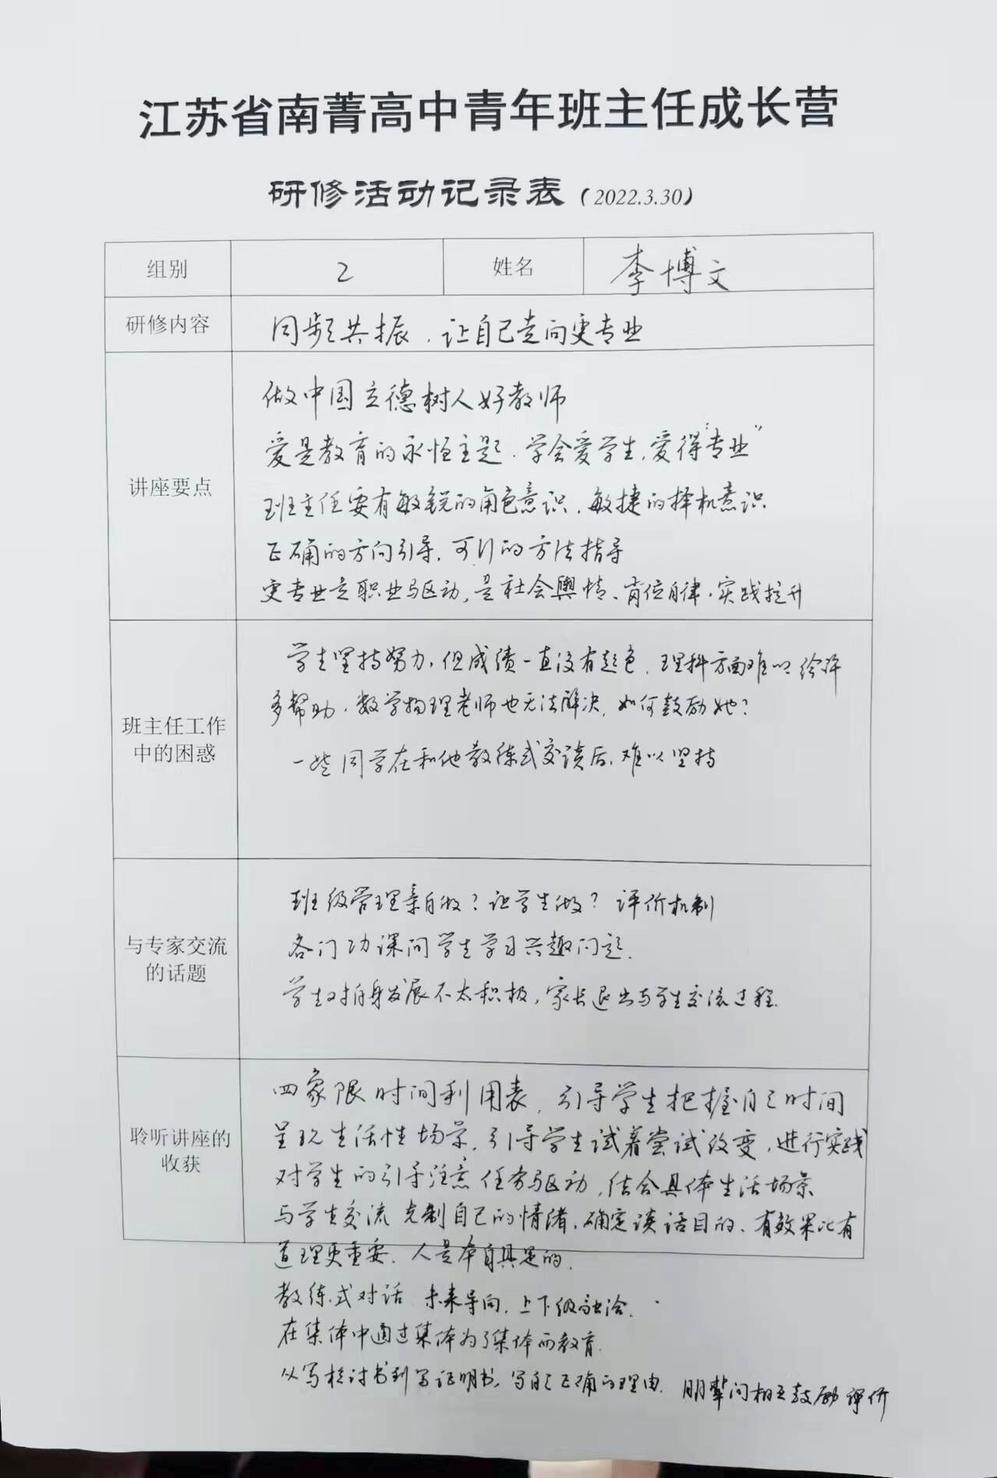 江苏省南菁高中青年班主任成长营
研修活动记录表（2022.3.30）
组别 2 姓名 李博文
研修内容 同频共振，让自己走向更专业
讲座要点
做中国立德树人好教师
爱是教育的永恒主题．学会爱学生，爱得“专业”
班主任要有敏锐的角色意识，敏捷的择机意识
正确的方向引导，可行的方法指导
更专业是职业驱动，是社会舆情、岗位自律，实践提升
班主任工作中的困惑
学生坚持努力，但成绩一直没有起色，理科方面难以给许
多帮助，数学物理老师也无法解决，如何鼓励她？
一些同学在和他教练式交谈后，难以坚持
与专家交流的话题
班级管理亲自做？让学生做？评价机制
各门功课间学生学习兴趣问题．
学生对自身发展不太积极，家长退出与学生交流过程．
聆听讲座的收获
四象限时间利用表，引导学生把握自己时间
呈现生活性场景，引导学生试着尝试改变，进行实践
对学生的引导注意任务驱动，结合具体生活场景
与学生交流 克制自己的情绪，确定谈话目的，有效果比有
道理更重要．人是本自具足的．
教练式对话 未来导向，上下级融洽．
在集体中通过集体为了集体而教育．
从写检讨书到写证明书，写自己正确的理由． 朋辈间相互鼓励评价